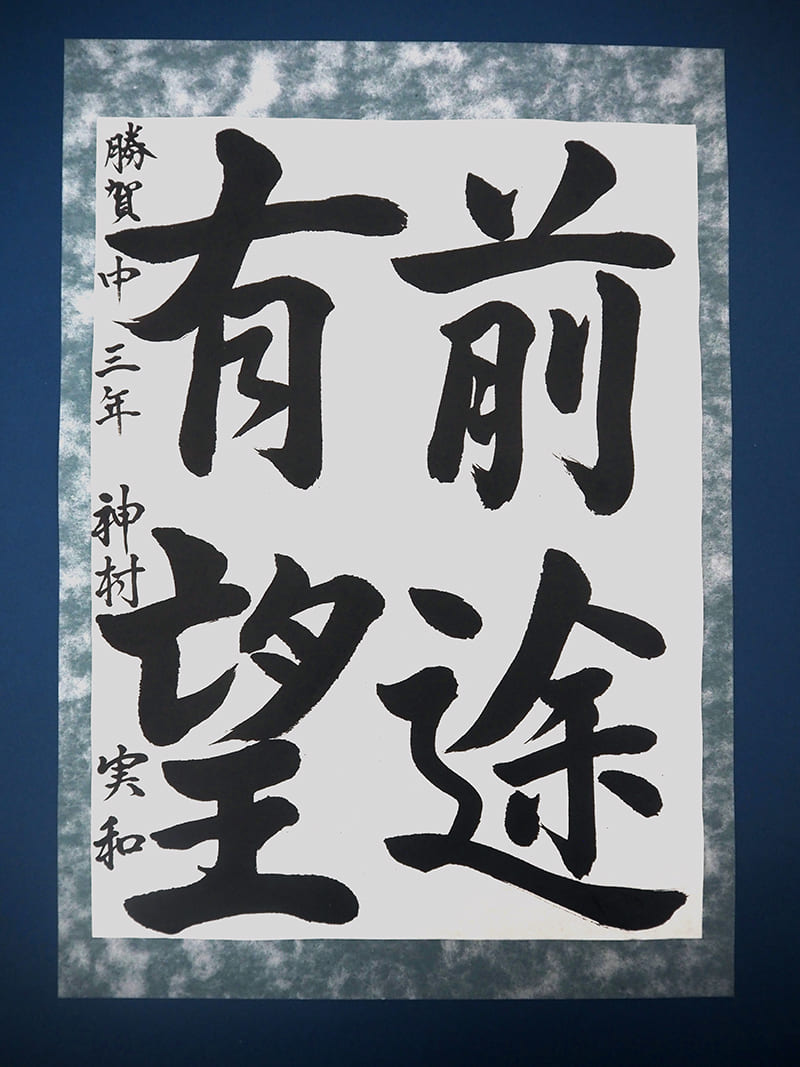 前途
有望
勝賀中三年 神村実和